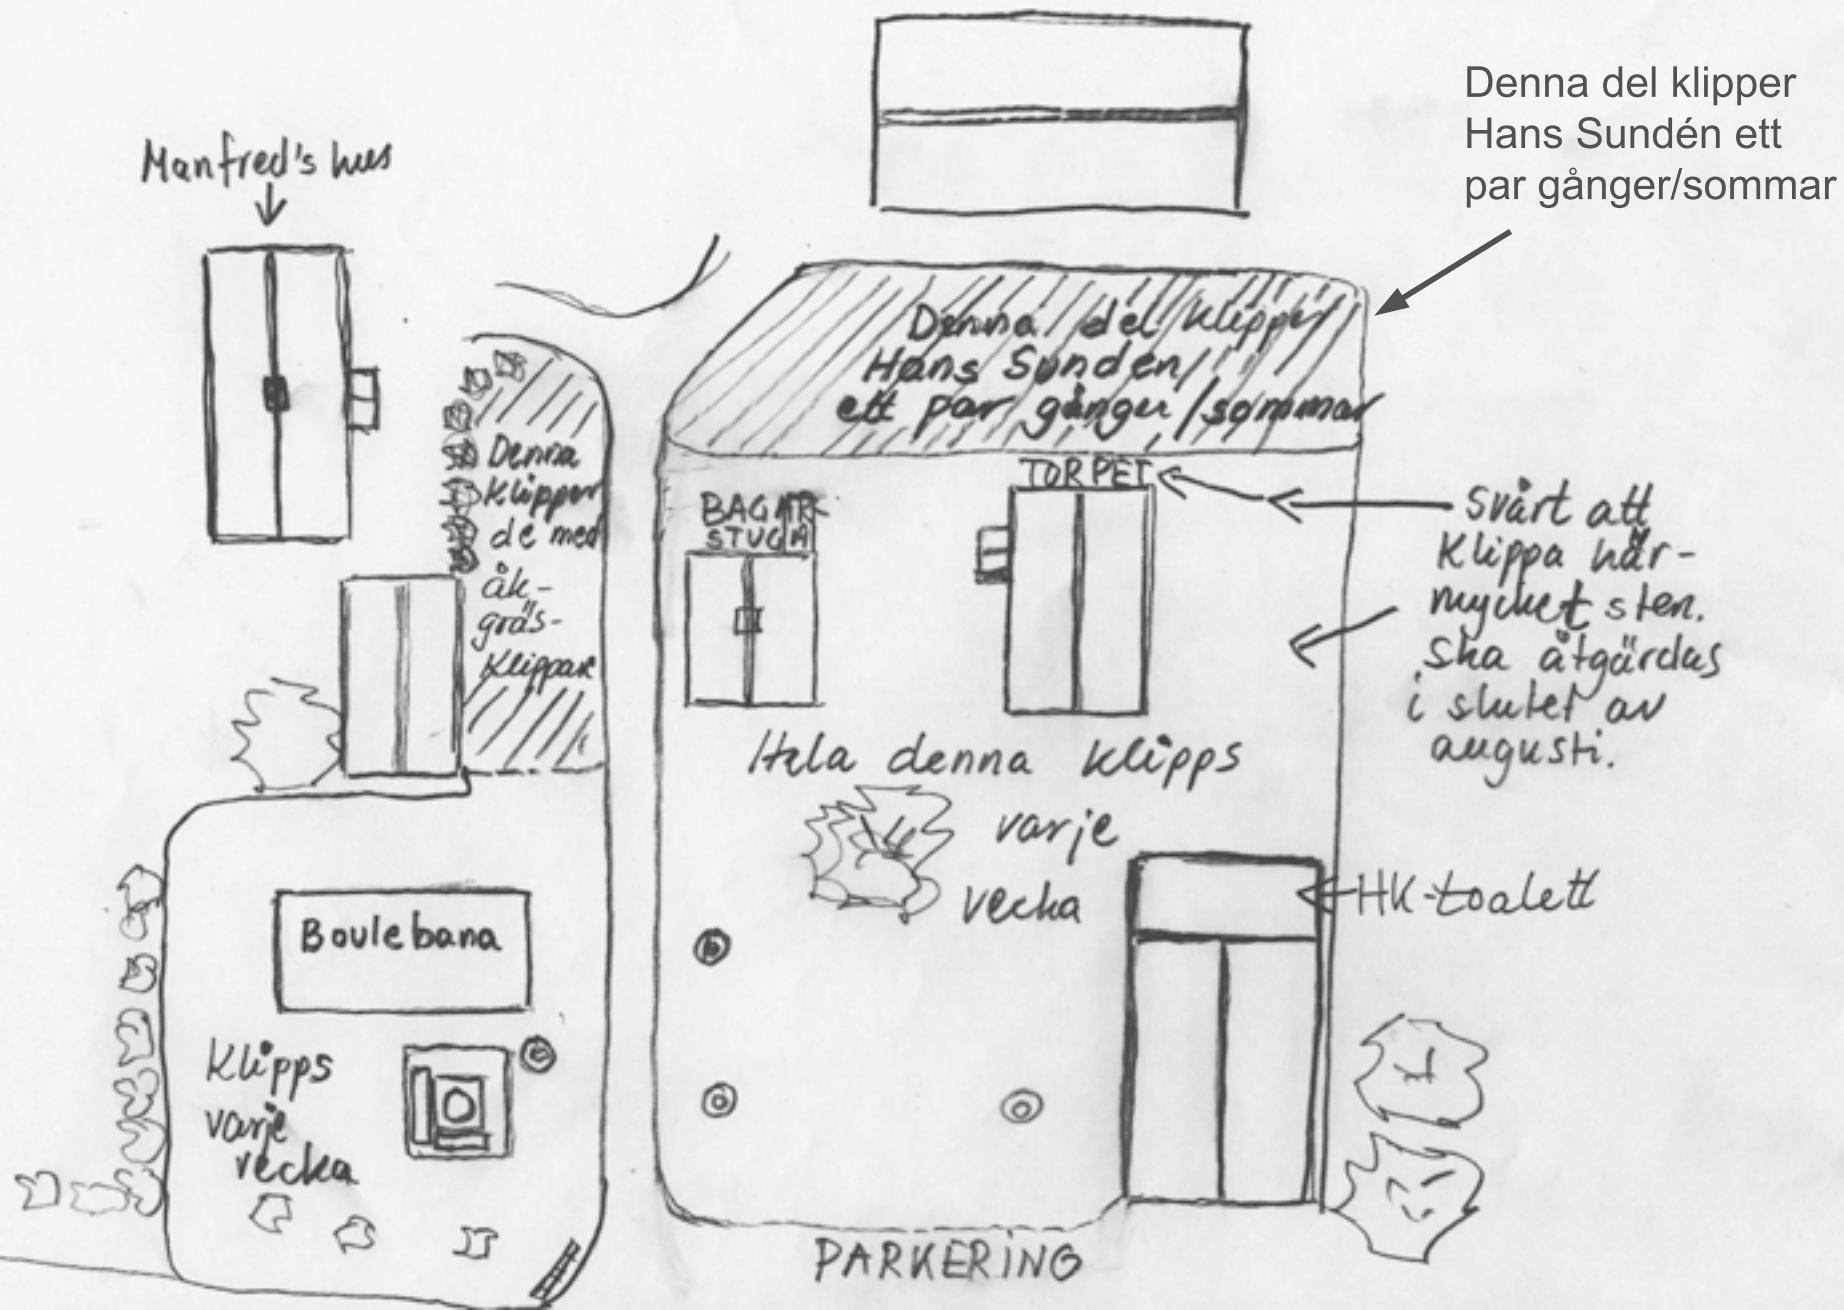 Denna del klipper
Hans Sundén ett
par gånger/sommar
Manfred's hus
Denna del klipper
Hans Sundén
ett par gånger/sommar
Denna
klipper
de med
åk-
gräs-
klippare
BAGAR-
STUGA
TORPET
Svårt att
klippa här-
mycket sten.
Ska åtgärdas
i slutet av
augusti.
Hela denna klipps
varje
vecka
HK-toalett
Boulebana
Klipps
varje
vecka
PARKERING